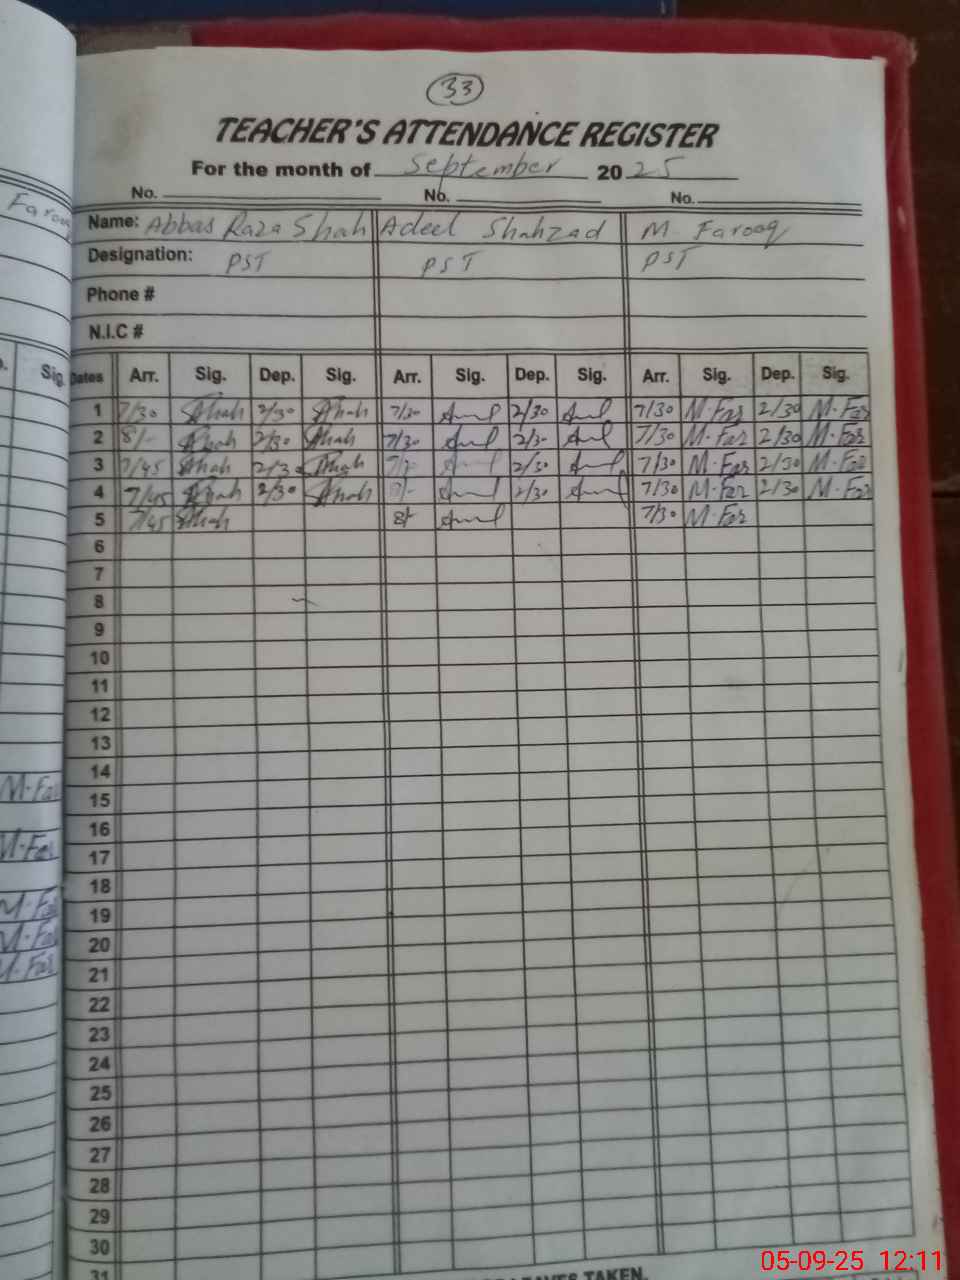 33
TEACHER'S ATTENDANCE REGISTER
For the month of September 2025
No. No. No.
Name: Abbas Raza Shah Adeel Shahzad M. Farooq
Designation: PST PST PST
Phone #
N.I.C #
Sig. Dates Arr. Sig. Dep. Sig. Arr. Sig. Dep. Sig. Arr. Sig. Dep. Sig.
1 7/30 Shah 2/30 Shah 7/30 2/30 7/30 M.Far 2/30 M.Far
2 8/- Shah 2/30 Shah 7/30 2/30 7/30 M.Far 2/30 M.Far
3 7/45 Shah 2/30 Shah 2/30 7/30 M.Far 2/30 M.Far
4 7/45 Shah 2/30 Shah 2/30 7/30 M.Far 2/30 M.Far
5 7/45 Shah 8/- 7/30 M.Far
6
7
8
9
10
11
12
13
14
15
16
17
18
19
20
21
22
23
24
25
26
27
28
29
30
31
LEAVES TAKEN.
Farooq
M.Far
M.Far
M.Far
M.Far
M.Far
05-09-25 12:11